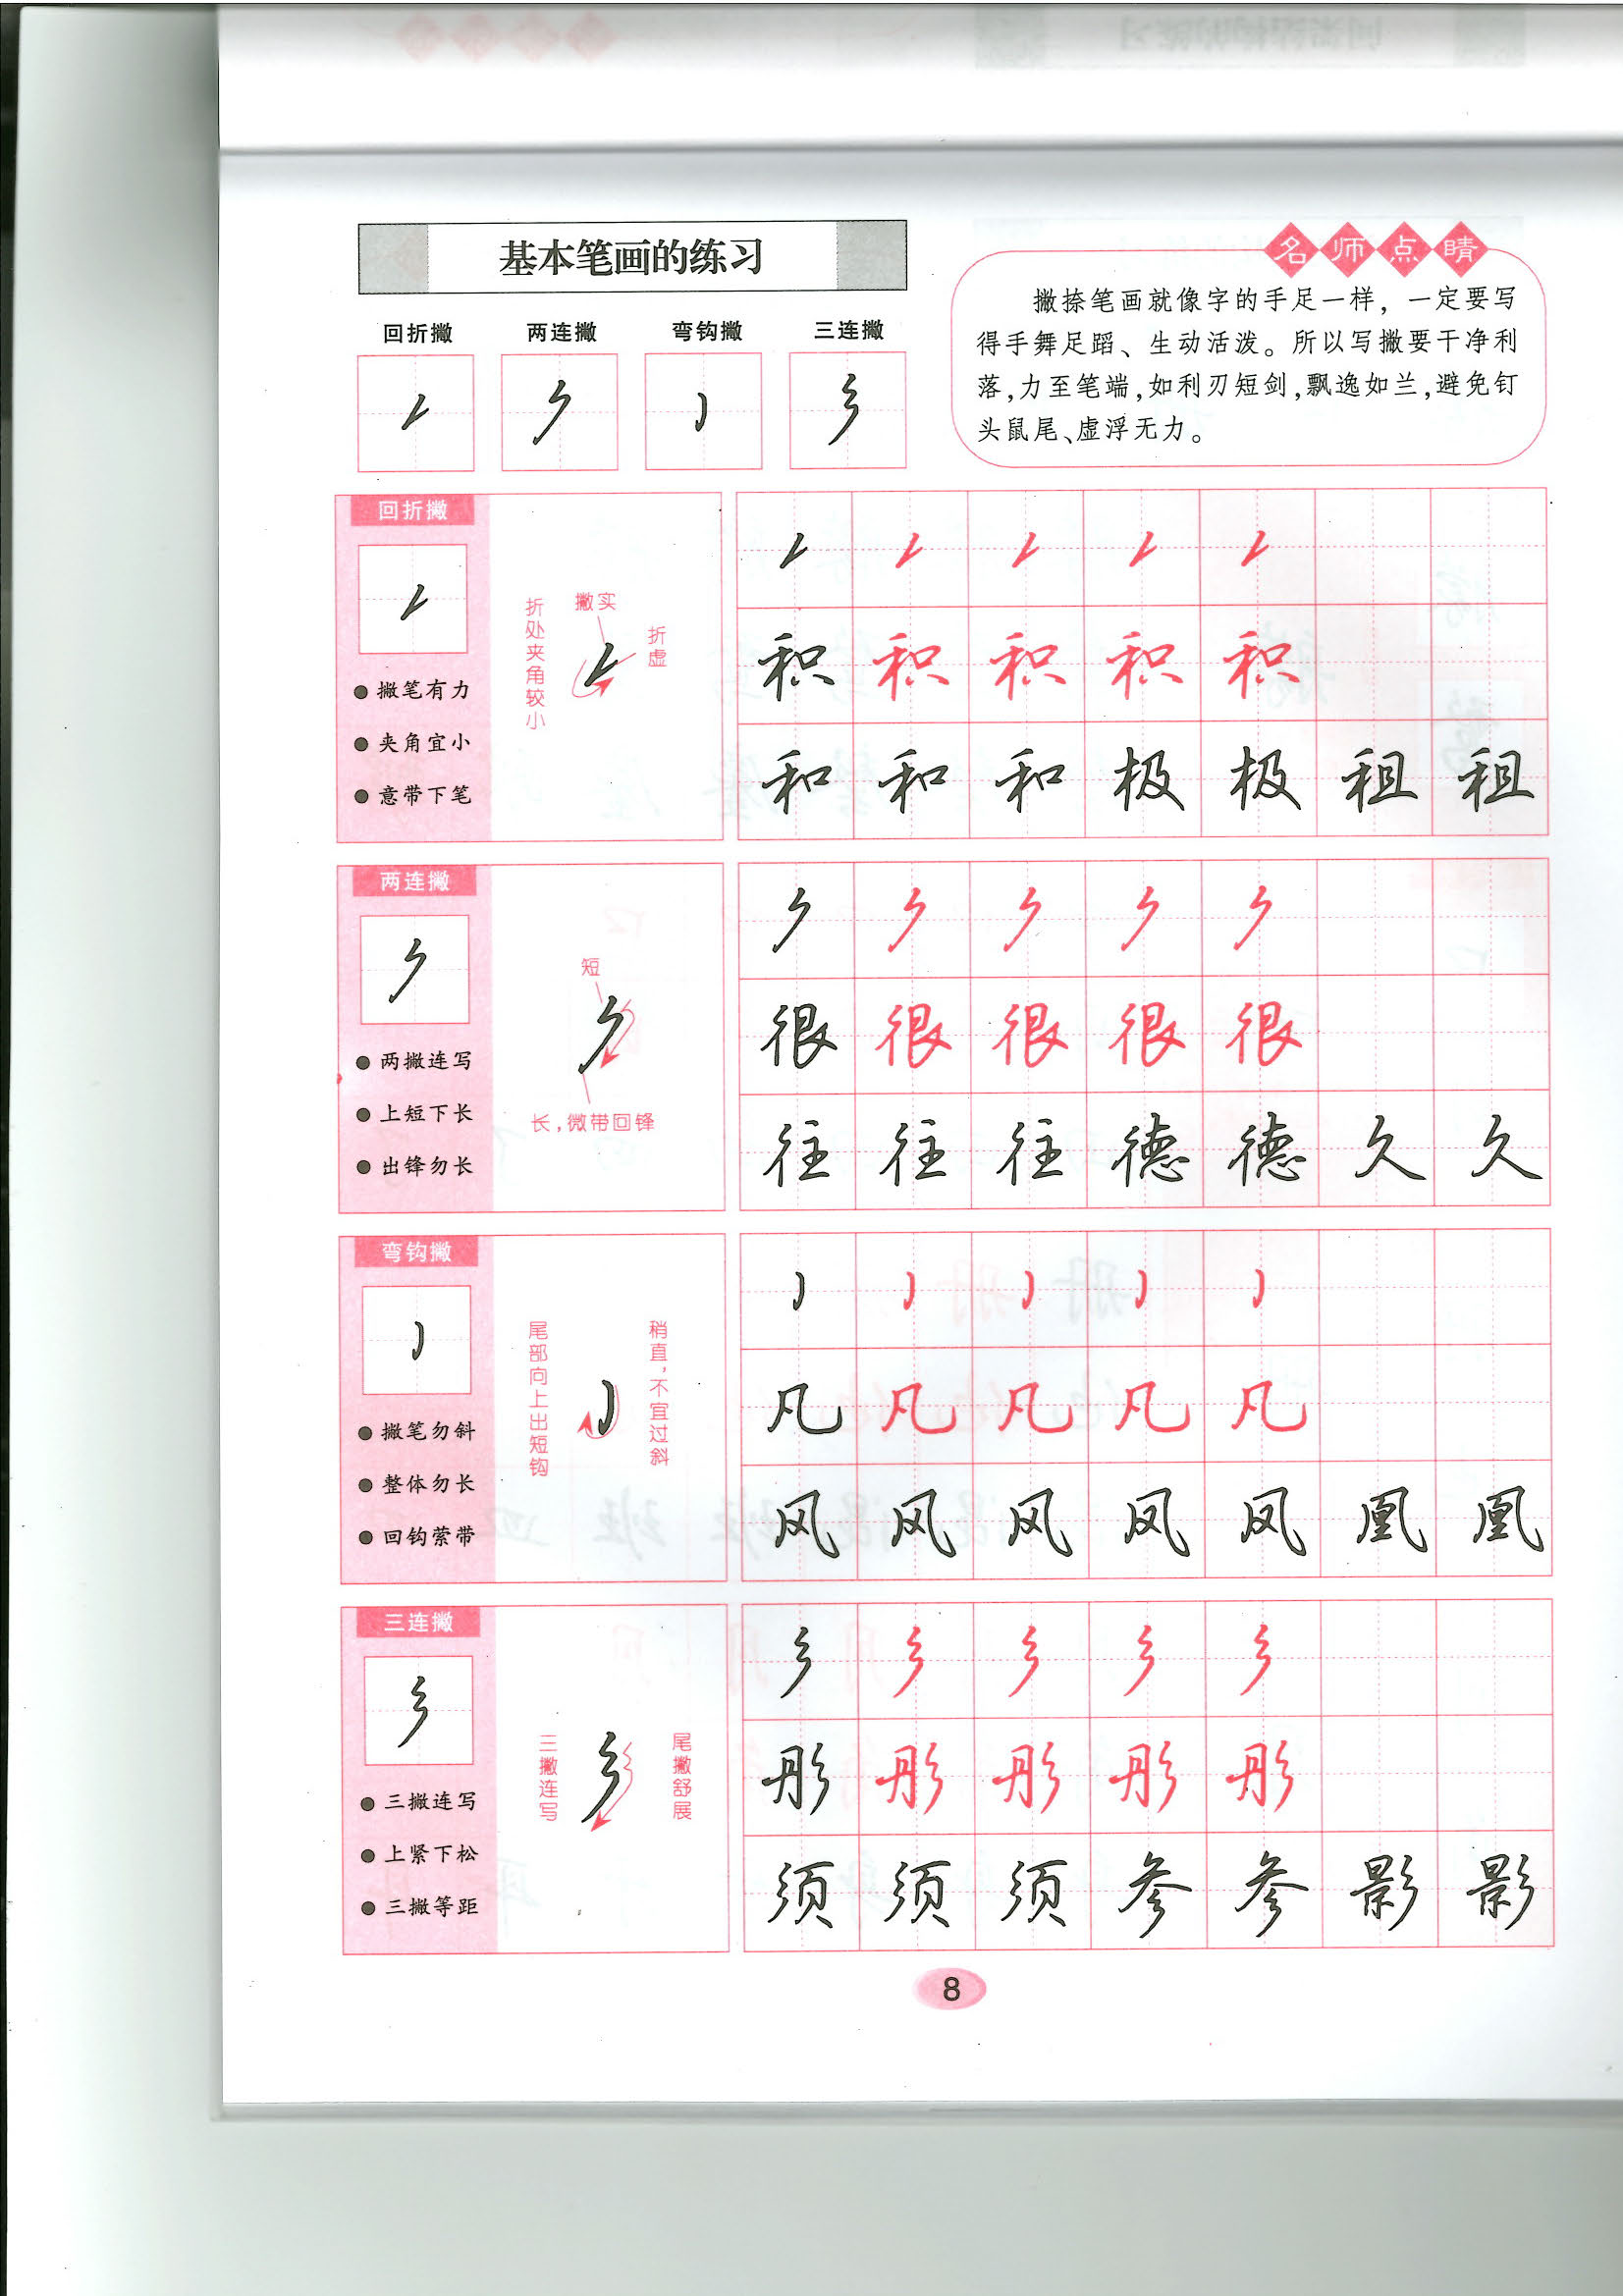 基本笔画的练习
名师点睛
撇捺笔画就像字的手足一样，一定要写
得手舞足蹈、生动活泼。所以写撇要干净利
落，力至笔端，如利刃短剑，飘逸如兰，避免钉
头鼠尾、虚浮无力。
回折撇 两连撇 弯钩撇 三连撇
回折撇
撇笔有力
夹角宜小
意带下笔
折处夹角较小
撇实
折虚
积 积 积 积 积
和 和 和 极 极 租 租
两连撇
两撇连写
上短下长
出锋勿长
短
长，微带回锋
很 很 很 很 很
往 往 往 德 德 久 久
弯钩撇
撇笔勿斜
整体勿长
回钩萦带
尾部向上出短钩
稍直，不宜过斜
凡 凡 凡 凡 凡
风 风 风 凤 凤 凰 凰
三连撇
三撇连写
上紧下松
三撇等距
三撇连写
尾撇舒展
彤 彤 彤 彤 彤
须 须 须 参 参 影 影
8